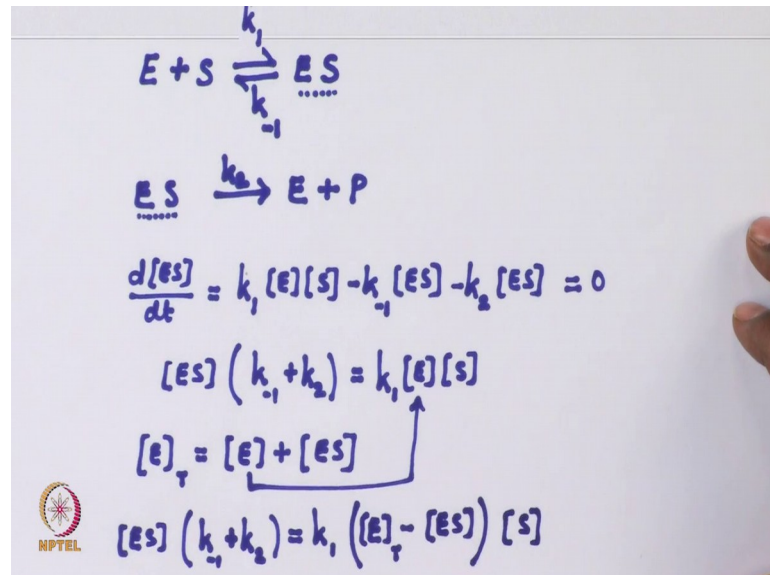 k₁
E + S ⇌ ES
k₋₁
ES —k₂→ E + P
d[ES]/dt = k₁ [E][S] - k₋₁ [ES] - k₂ [ES] = 0
[ES] (k₋₁ + k₂) = k₁ [E][S]
[E]_T = [E] + [ES]
[ES] (k₋₁ + k₂) = k₁ ([E]_T - [ES]) [S]
NPTEL